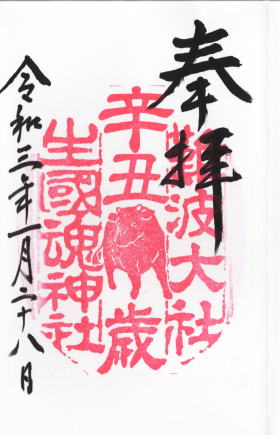 奉拝
難波大社
辛丑歳
生國魂神社
令和三年一月二十八日